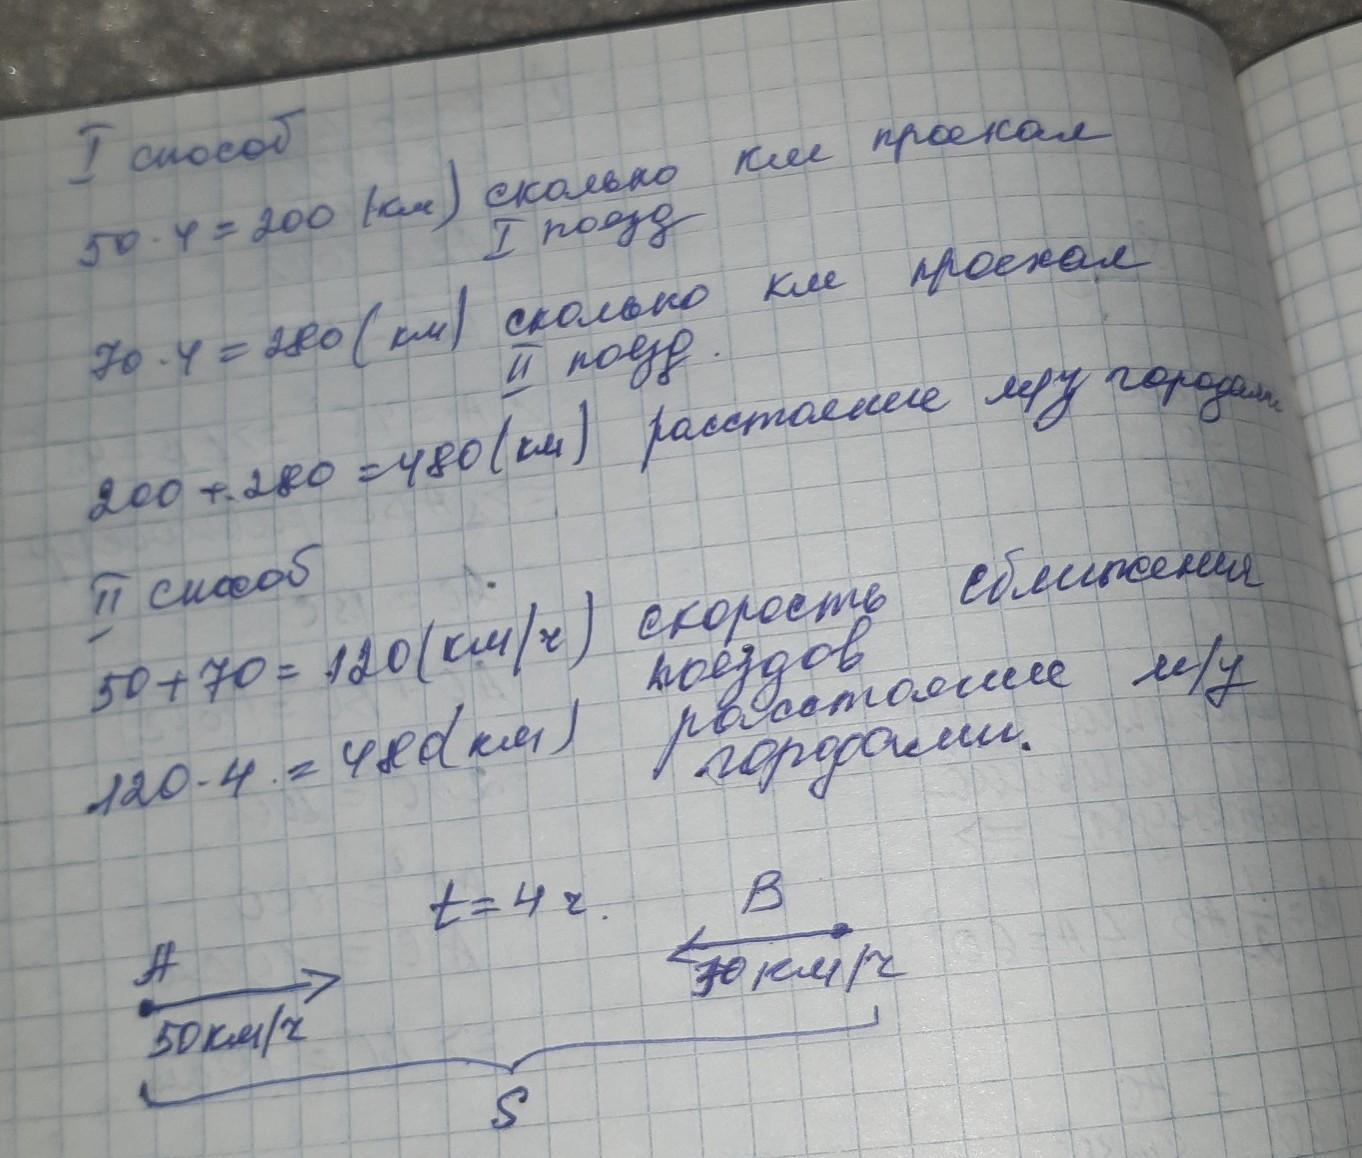 I способ
50 · 4 = 200 (км) сколько км проехал
I поезд
70 · 4 = 280 (км) сколько км проехал
II поезд.
200 + 280 = 480 (км) расстояние м/у городами
II способ
50 + 70 = 120 (км/ч) скорость сближения
поездов
120 · 4 = 480 (км) расстояние м/у
городами.
t = 4 ч.
B
A
70 км/ч
50 км/ч
S